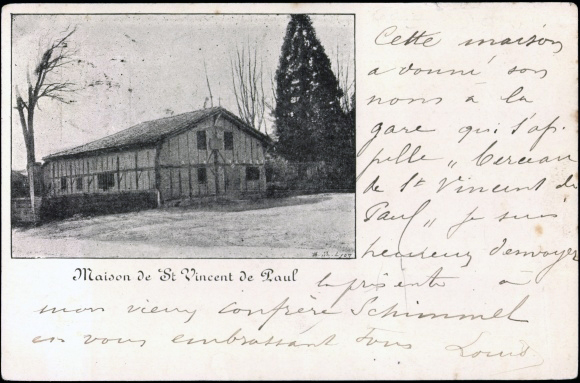 Cette maison
a donné son
nom à la
gare qui s'ap-
pelle „ Berceau
de St Vincent de
Paul „ je suis
heureux d'envoyer
la présente à
mon vieux confrère Schimmel
en vous embrassant tous Louis
Maison de St Vincent de Paul